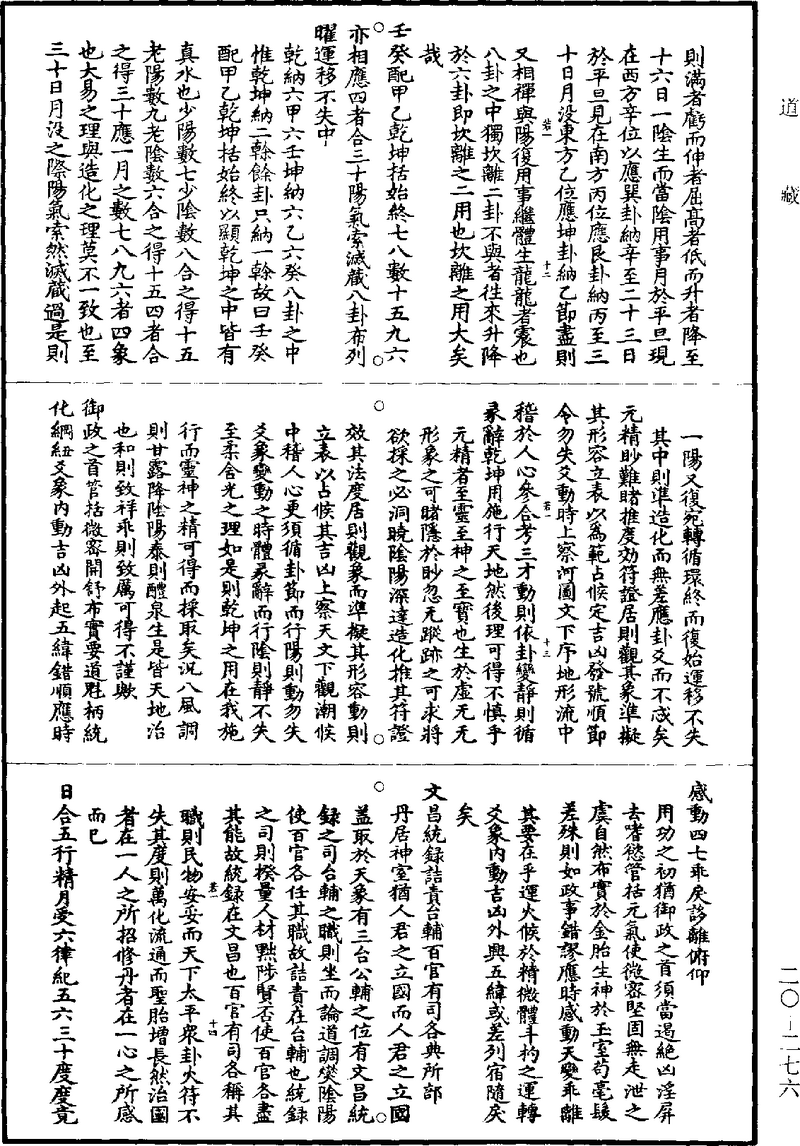 道藏
則滿者虧而伸者屈高者低而升者降至
十六日一陰生而當陰用事月於平旦現
在西方辛位以應巽卦納辛至二十三日
於平旦見在南方丙位應艮卦納丙至三
十日月没東方乙位應坤卦納乙節盡則
若一 十二
又相禪與陽復用事繼體生龍龍者震也
八卦之中獨坎離二卦不與者往來升降
於六卦即坎離之二用也坎離之用大矣
哉
壬癸配甲乙乾坤括始終七八數十五九六
亦相應四者合三十陽氣索滅藏八卦布列
曜運移不失中
乾納六甲六壬坤納六乙六癸八卦之中
惟乾坤納二榦餘卦只納一榦故曰壬癸
配甲乙乾坤括始終以顯乾坤之中皆有
真水也少陽數七少陰數八合之得十五
老陽數九老陰數六合之得十五四者合
之得三十應一月之數七八九六者四象
也大易之理與造化之理莫不一致也至
三十日月没之際陽氣索然滅藏過是則
一陽又復宛轉循環終而復始運移不失
其中則準造化而無差應卦爻而不忒矣
元精眇難睹推度効符證居則觀其象準擬
其形容立表以為範占候定吉凶發號順節
令勿失爻動時上察河圖文下序地形流中
若一 十三
稽於人心參合考三才動則依卦變靜則循
彖辭乾坤用施行天地然後理可得不慎乎
元精者至靈至神之至寶也生於虛无无
形象之可睹隱於眇忽无蹤跡之可求將
欲採之必洞曉陰陽深達造化推其符證
效其法度居則觀象而準擬其形容動則
立表以占候其吉凶上察天文下觀潮候
中稽人心更須循卦節而行陽則動勿失
爻象變動之時體彖辭而行陰則靜不失
至柔含光之理如是則乾坤之用在我施
行而靈神之精可得而採取矣況八風調
則甘露降陰陽泰則醴泉生是皆天地治
也和則致祥乖則致厲可得不謹歟
御政之首管括微密開舒布實要道魁柄統
化綱紐爻象内動吉凶外起五緯錯順應時
感動四七乖戾誃離俯仰
用功之初猶御政之首須當遏絶凶淫屏
去嗜慾管括元氣使微密堅固無走泄之
虞自然布實於金胎生神於玉室苟毫髮
差殊則如政事錯謬應時感動天變乖離
其要在乎運火候於精微體斗杓之運轉
爻象内動吉凶外興五緯或差列宿隨戾
矣
文昌統録詰責台輔百官有司各典所部
丹居神室猶人君之立國而人君之立國
蓋取於天象有三台公輔之位有文昌統
録之司台輔之職則坐而論道調燮陰陽
使百官各任其職故詰責在台輔也統録
之司則揆量人材黜陟賢否使百官各盡
其能故統録在文昌也百官有司各稱其
若一 十四
職則民物安妥而天下太平衆卦火符不
失其度則萬化流通而聖胎增長然治國
者在一人之所招修丹者在一心之所感
而已
日合五行精月受六律紀五六三十度度竟
二〇－二七六